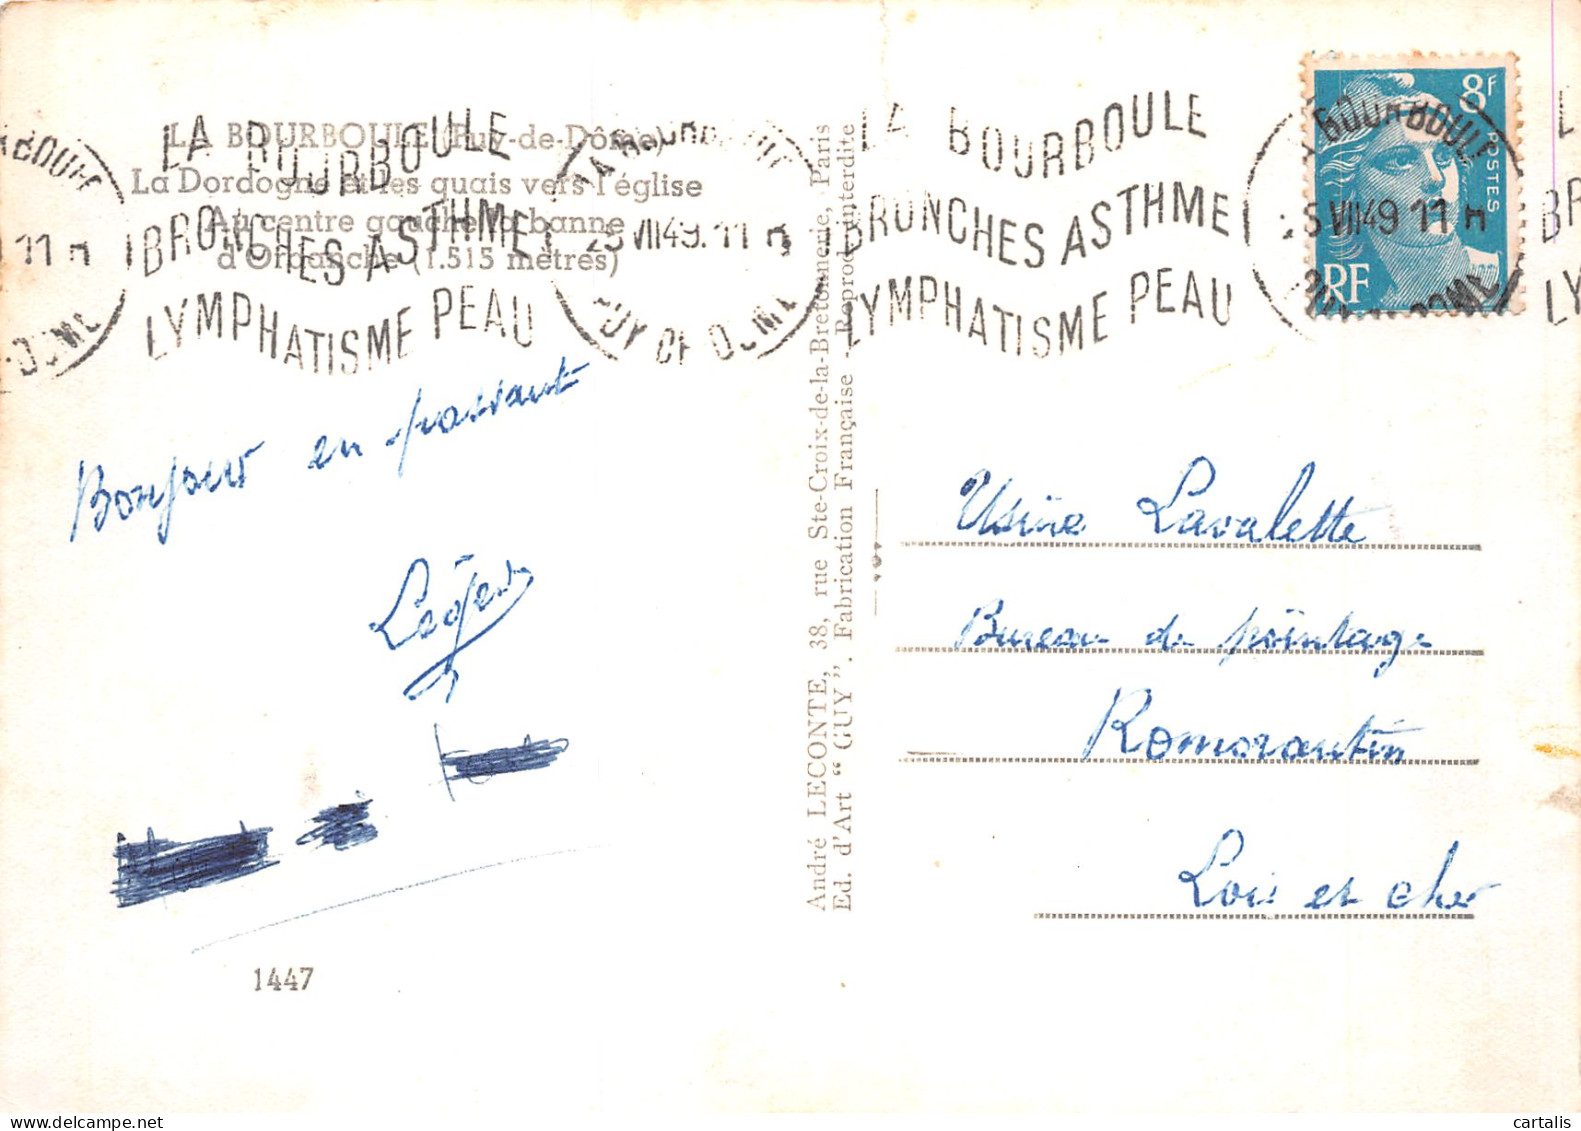 LA BOURBOULE (Puy-de-Dôme)
La Dordogne et les quais vers l'église
Au centre gauche la banne
d'Ordanche (1.515 mètres)
LA BOURBOULE
BRONCHES ASTHME
LYMPHATISME PEAU
LA BOURBOULE
25 VII 49. 11 H
PUY DE DOME
LA BOURBOULE
BRONCHES ASTHME
LYMPHATISME PEAU
BOURBOULE
25 VII 49 11 H
8F
POSTES
RF
Bonjour en passant
Leger
1447
André LECONTE, 38, rue Ste-Croix-de-la-Bretonnerie, Paris
Ed. d'Art "GUY". Fabrication Française - Reproduc. interdite
Usine Lavalette
Bureau de pointage
Romorantin
Loir et cher
cartalis